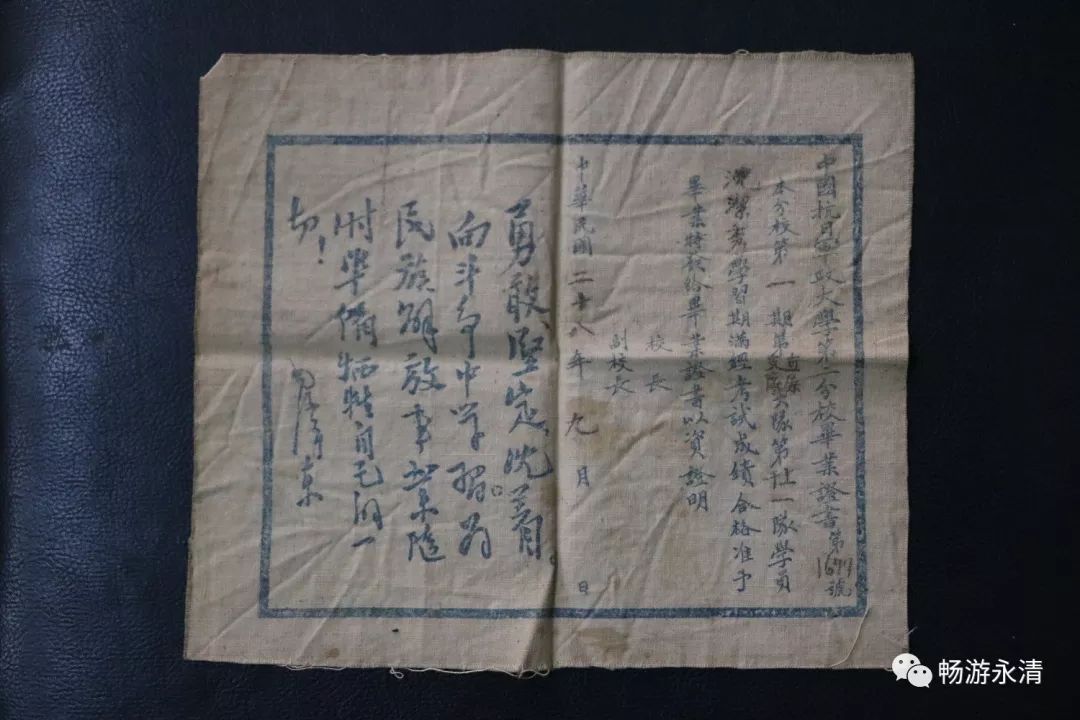 中國抗日軍政大學第二分校畢業證書第
號
本分校第一期第直屬大隊第一隊學員
潔 學習期滿經考試成績合格准予
畢業特發給畢業證書以資證明
校長
副校長
中華民國二十八年九月 日
勇敢、堅定、沈着。
向斗争中学習。为
民族解放事业随
时準備犧牲自己的一
切!
毛澤東
畅游永清